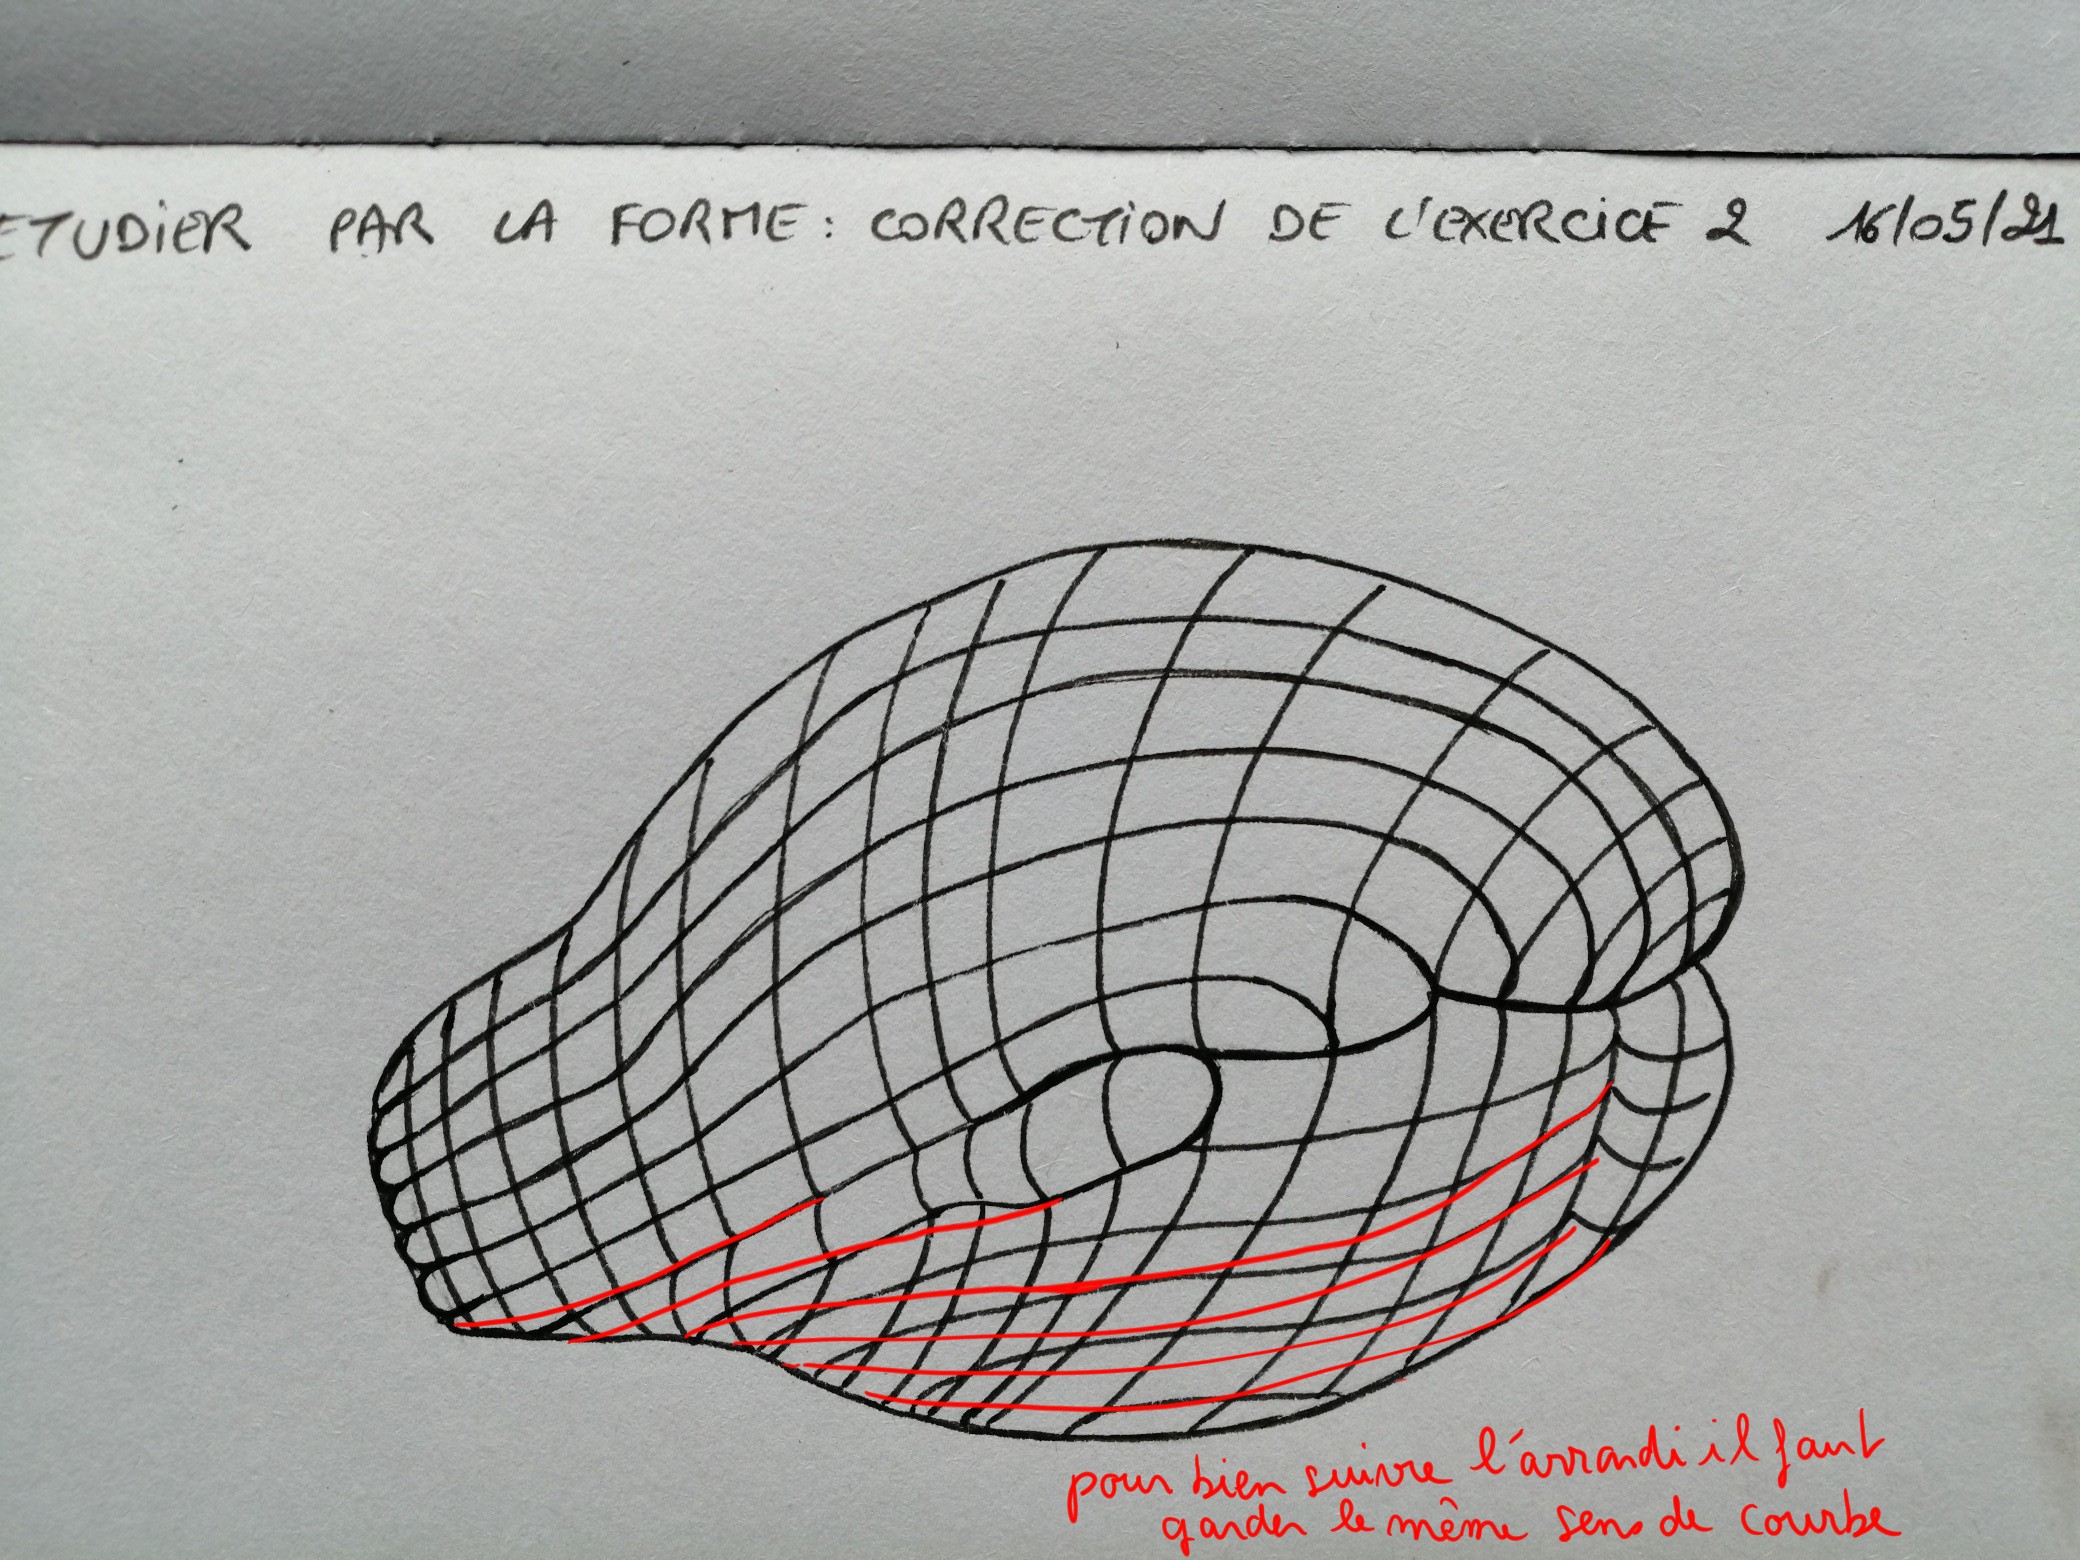 ETUDIER PAR LA FORME : CORRECTION DE L'EXERCICE 2 16/05/21
pour bien suivre l'arrondi il faut
garder le même sens de courbe